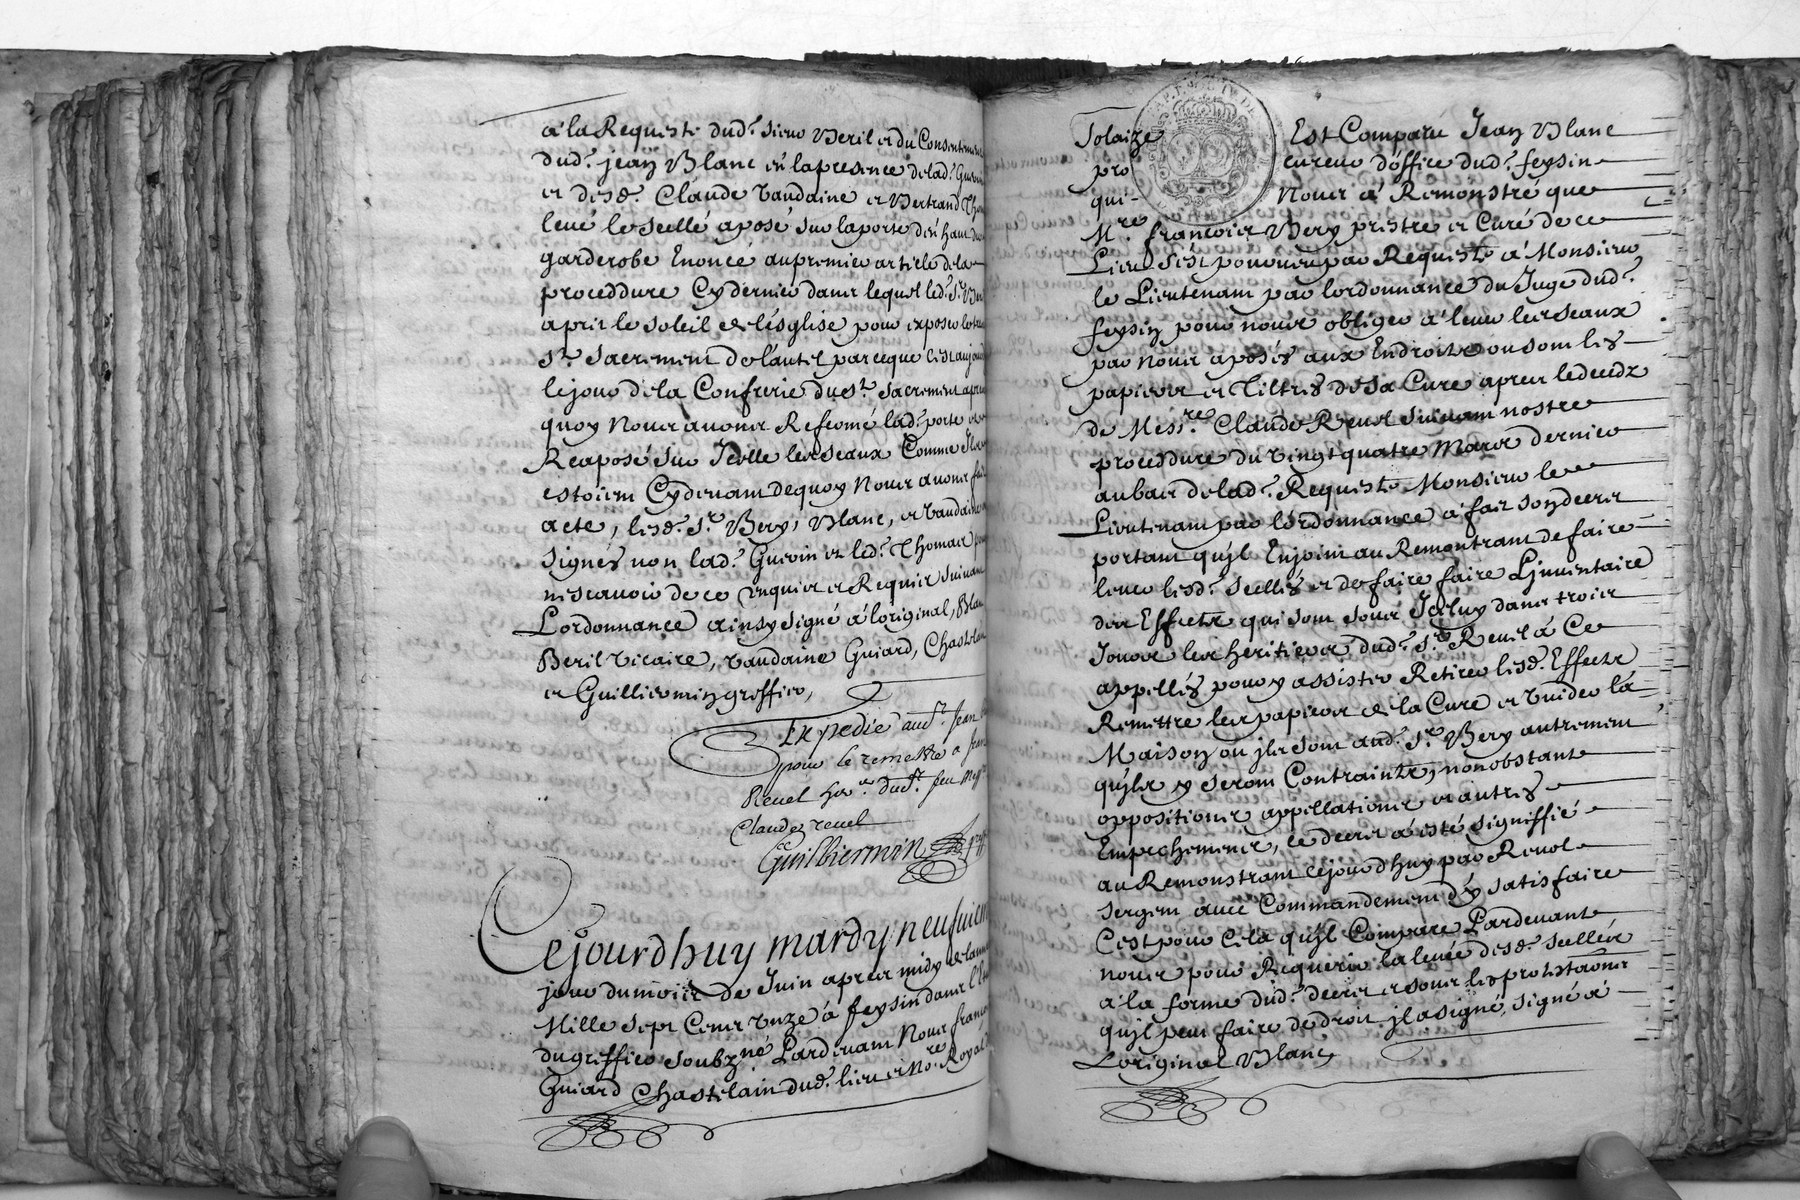 a la Requeste dud.t sieur Beril et du Consentement
dud.t jean Blanc en la presence de lad.t Guerin
et desd.t Claude Vaudaine et Bertrand Tho
levé le scellé aposé sur la porte d'en haut du
garderobe Enoncé au premier article de la
proceddure Cy dernier dans lequel led.t Sr Ber
a pris le soleil de l'esglise pour exposer le tres
St Sacrement de l'autel parceque c'est aujourd
le jour de la Confrerie du St Sacrement apres
quoy Nous avons Refermé lad.t porte et
Reaposé sur Jcelle les seaux Comme Jls
estoient Cy devant de quoy Nous avons fait
acte, lesd.t Sr Bery, Blanc, et Vaudaine
signés non lad.t Guerin et led.t Thomas pour
ne scavoir de ce enquis et Requis suivant
Lordonnance ainsy signé a l'original, Blanc
Beril Vicaire, Vaudaine Guiard, Chastelain
et Guilliermin greffier,
Expedié aud.t Jean
pour le remettre a fran
Revel her. dud.t feu Me
Claude revel
Guilliermin
Cejourdhuy mardy neufuieme
jour du mois de Juin apres midy de lannee
Mille sept Cent Unze á feysin dans l'
du greffier soubzné Pardevant Nous francois
Guiard Chastelain dud.t lieu et Nore Royal
Est Comparu Jean Blanc
pro cureur d'office dud.t feysin
qui Nous á Remonstré que
Mre francois Bery prestre et Curé de ce
Lieu s'est pourveu par Requeste á Monsieur
le Lieutenant par lordonnance du Juge dud.t
feysin pour nous obliger á lever les seaux
par nous aposés aux Endroits ou sont les
papiers et Tiltres de sa Cure apres le decedz
de Messre Claude Revel suivant nostre
proceddure du vingt quatre Mars dernier
au bas de lad.t Requeste Monsieur le
Lieutenant par l'ordonnance á fait son decret
portant qu'jl Enjoint au Remontrant de faire
lever lesd.t scellés et de faire faire L'jnventaire
des Effects qui sont sous Jceluy dans trois
Jours les heritiers dud.t Sr Revel á Ce
appellés pour y assister Retirer lesd.t Effects
Remettre les papiers de la Cure et vuider la
Maison ou jls sont aud.t Sr Bery autrement
qu'jls y seront Contraints, nonobstant
oppositions appellations et autres
Empechements, le decret á esté signiffié
au Remonstrant cejourd'huy par Revol
sergent avec Commandement d'y satisfaire
C'est pour Cela qu'jl Compare Pardevant
nous pour Requerir la levée desd.t scellés
á la forme dud.t decret et sous les protestations
qu'jl peut faire de droit jl a signé, signé á
L'original Blanc